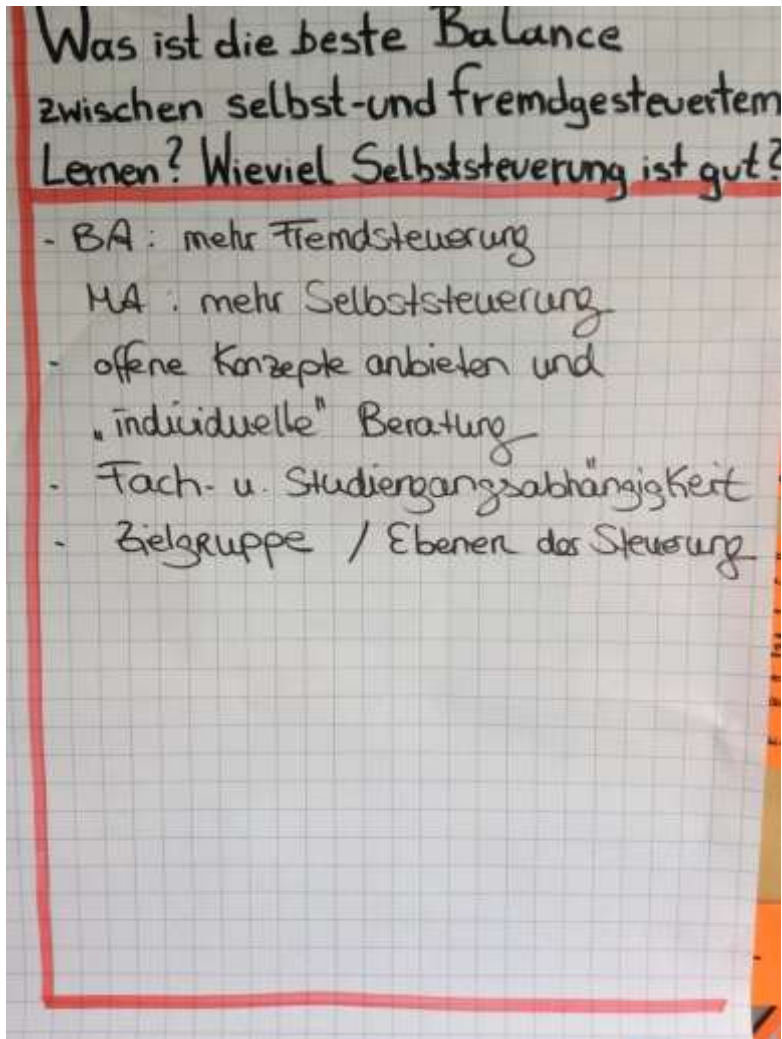 Was ist die beste Balance
zwischen selbst-und fremdgesteuertem
Lernen? Wieviel Selbststeuerung ist gut?
- BA: mehr Fremdsteuerung
MA: mehr Selbststeuerung
- offene Konzepte anbieten und
„individuelle" Beratung
- Fach- u. Studiengangsabhängigkeit
- Zielgruppe / Ebenen der Steuerung